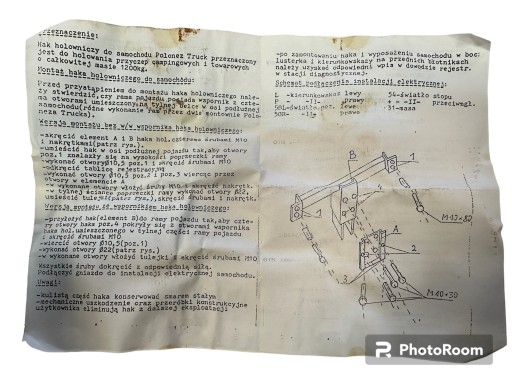 Przeznaczenie:
Hak holowniczy do samochodu Polonez Truck przeznaczony
jest do holowania przyczep campingowych i towarowych
o całkowitej masie 1200kg.
Montaż haka holowniczego do samochodu:
Przed przystąpieniem do montażu haka holowniczego należy
stwierdzić, czy rama pojazdu posiada wspornik z czterema
otworami umieszczony na tylnej belce w osi podłużnej
samochodu (różne wykonanie ram przez dwie montownie Poloneza
Trucka).
Wersja montażu bez w/w wspornika haka holowniczego:
-skręcić element A i B haka hol. czterema śrubami M10
i nakrętkami (patrz rys.)
-umieścić hak w osi podłużnej pojazdu tak, aby otwory
poz.1 znalazły się na wysokości poprzeczki ramy
-wykonać otwory Ø10,5 poz.1 i skręcić śrubami M10
-odkręcić tablicę rejestracyjną
-wykonać otwory Ø10,5 poz.2 i poz.3 wiercąc przez
otwory w elemencie A
-w wykonane otwory włożyć śruby M10 i skręcić nakrętk.
-w tylnej ściance poprzeczki ramy wykonać otwory Ø22,
umieścić tulejki (patrz rys.), skręcić śrubami i nakrętk.
Wersja montażu ze wspornikiem haka holowniczego:
-przyłożyć hak (element B) do ramy pojazdu tak, aby cztery
otwory haka poz.4 pokryły się z otworami wspornika
haka hol. umieszczonego w tylnej części ramy pojazdu
i skręcić śrubami M10
-wiercić otwory Ø10,5 (poz.1)
-wykonać otwory Ø22 (patrz rys.)
-w wykonane otwory włożyć tulejki i skręcić śrubami M10
Wszystkie śruby dokręcić z odpowiednią siłą.
Podłączyć gniazdo do instalacji elektrycznej samochodu.
Uwagi:
-kulistą część haka konserwować smarem stałym
-mechaniczne uszkodzenie oraz przeróbki konstrukcyjne
użytkownika eliminują hak z dalszej eksploatacji
-po zamontowaniu haka i wyposażeniu samochodu w boczne
lusterka i kierunkowskazy na przednich błotnikach
należy uzyskać odpowiedni wpis w dowodzie rejestr.
w stacji diagnostycznej.
Schemat podłączenia instalacji elektrycznej:
L -kierunkowskaz lewy 54-światło stopu
P - -II- prawy + - -II- przeciwmgł.
58L-światło poz. lewe 31-masa
58R- -II- prawe
B
1
1
4
M10×80
A
2
3
M10×30
PhotoRoom